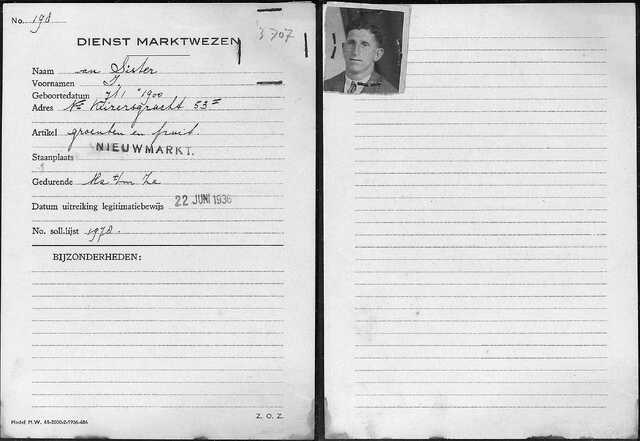 No. 198
3707
DIENST MARKTWEZEN
Naam van Sister
Voornamen J.
Geboortedatum 7/1 1900
Adres Nw Keizersgracht 53
Artikel groenten en fruit.
Staanplaats NIEUWMARKT.
Gedurende Ma t/m Za
Datum uitreiking legitimatiebewijs 22 JUNI 1936
No. soll.lijst 1978.
BIJZONDERHEDEN:
Z. O. Z.
Model M.W. 45-2000-2-1936-686